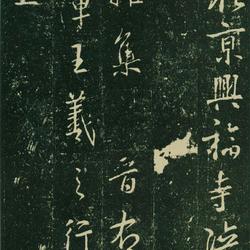 在京興福寺陪
雅集晉右
軍王羲之行